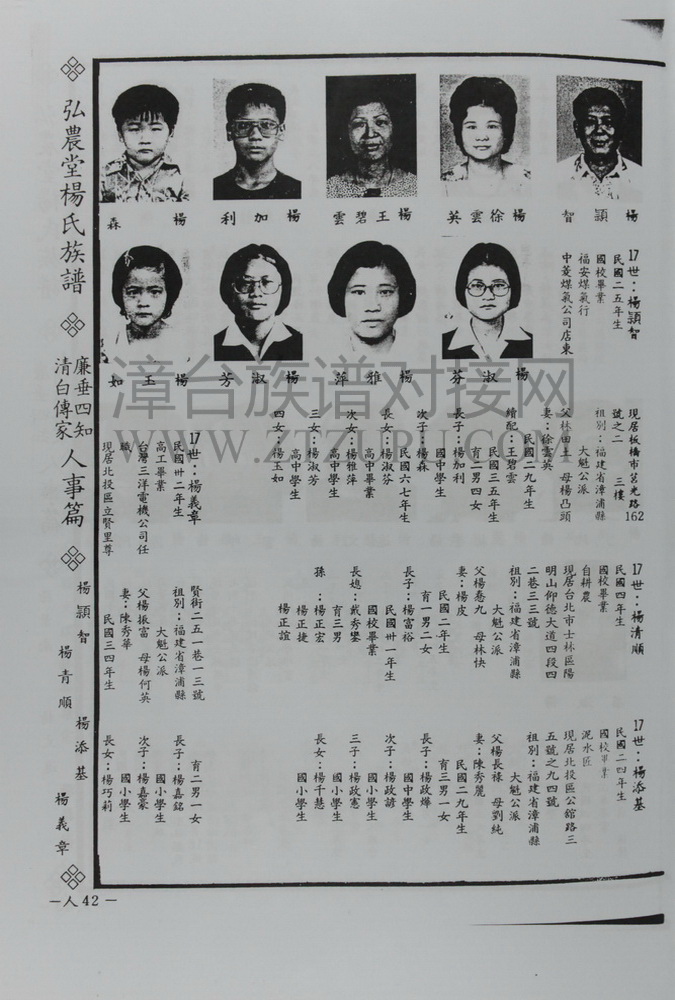 弘農堂楊氏族譜
廉垂四知
清白傳家
人事篇
楊穎智
楊青順
楊添基
楊義章
－人42－
楊穎智
楊徐雲英
楊王碧雲
楊加利
楊森
楊淑芬
楊雅萍
楊淑芳
楊玉如
17世：楊穎智
民國二五年生
國校畢業
福安煤氣行
中菱煤氣公司店東
現居板橋市莒光路162
號之二　三樓
祖別：福建省漳浦縣
大魁公派
父林田土　母楊凸頭
妻：徐雲英
民國二九年生
續配：王碧雲
民國三五年生
育二男四女
長子：楊加利
國中學生
次子：楊森
民國六七年生
長女：楊淑芬
高中畢業
次女：楊雅萍
高中學生
三女：楊淑芳
高中學生
四女：楊玉如
17世：楊清順
民國四年生
國校畢業
自耕農
現居台北市士林區陽
明山仰德大道四段四
二巷三三號
祖別：福建省漳浦縣
大魁公派
父楊惷九　母林快
妻：楊皮
民國二年生
育一男二女
長子：楊富裕
民國卅一年生
國校畢業
長媳：戴秀鑾
育三男
孫：楊正宏
楊正捷
楊正誼
17世：楊添基
民國二四年生
國校畢業
泥水匠
現居北投區公館路三
五號之九四號
祖別：福建省漳浦縣
大魁公派
父楊長祿　母劉純
妻：陳秀麗
民國二九年生
育三男一女
長子：楊政燁
國中學生
次子：楊政諺
國小學生
三子：楊政憲
國小學生
長女：楊千慧
國小學生
17世：楊義章
民國卅二年生
高工畢業
台灣三洋電機公司任
職
現居北投區立賢里尊
賢街二五一巷一三號
祖別：福建省漳浦縣
大魁公派
父楊振富　母楊何英
妻：陳秀華
民國三四年生
育二男一女
長子：楊嘉銘
國小學生
次子：楊嘉豪
國小學生
長女：楊巧莉
漳台族谱对接网
WWW.ZTZUPU.COM